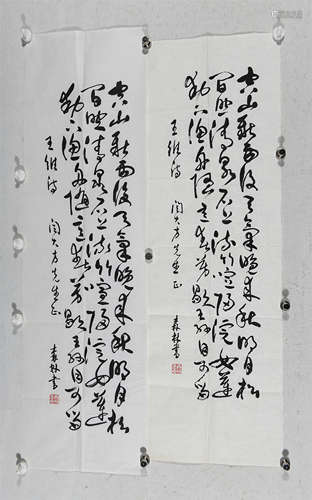 空山新雨後天氣晚來秋明月松
間照清泉石上流竹喧歸浣女蓮
動下漁舟隨意春芳歇王孫自可留
王維詩 大方先生正 森林書
空山新雨後天氣晚來秋明月松
間照清泉石上流竹喧歸浣女蓮
動下漁舟隨意春芳歇王孫自可留
王維詩 大方先生正 森林書